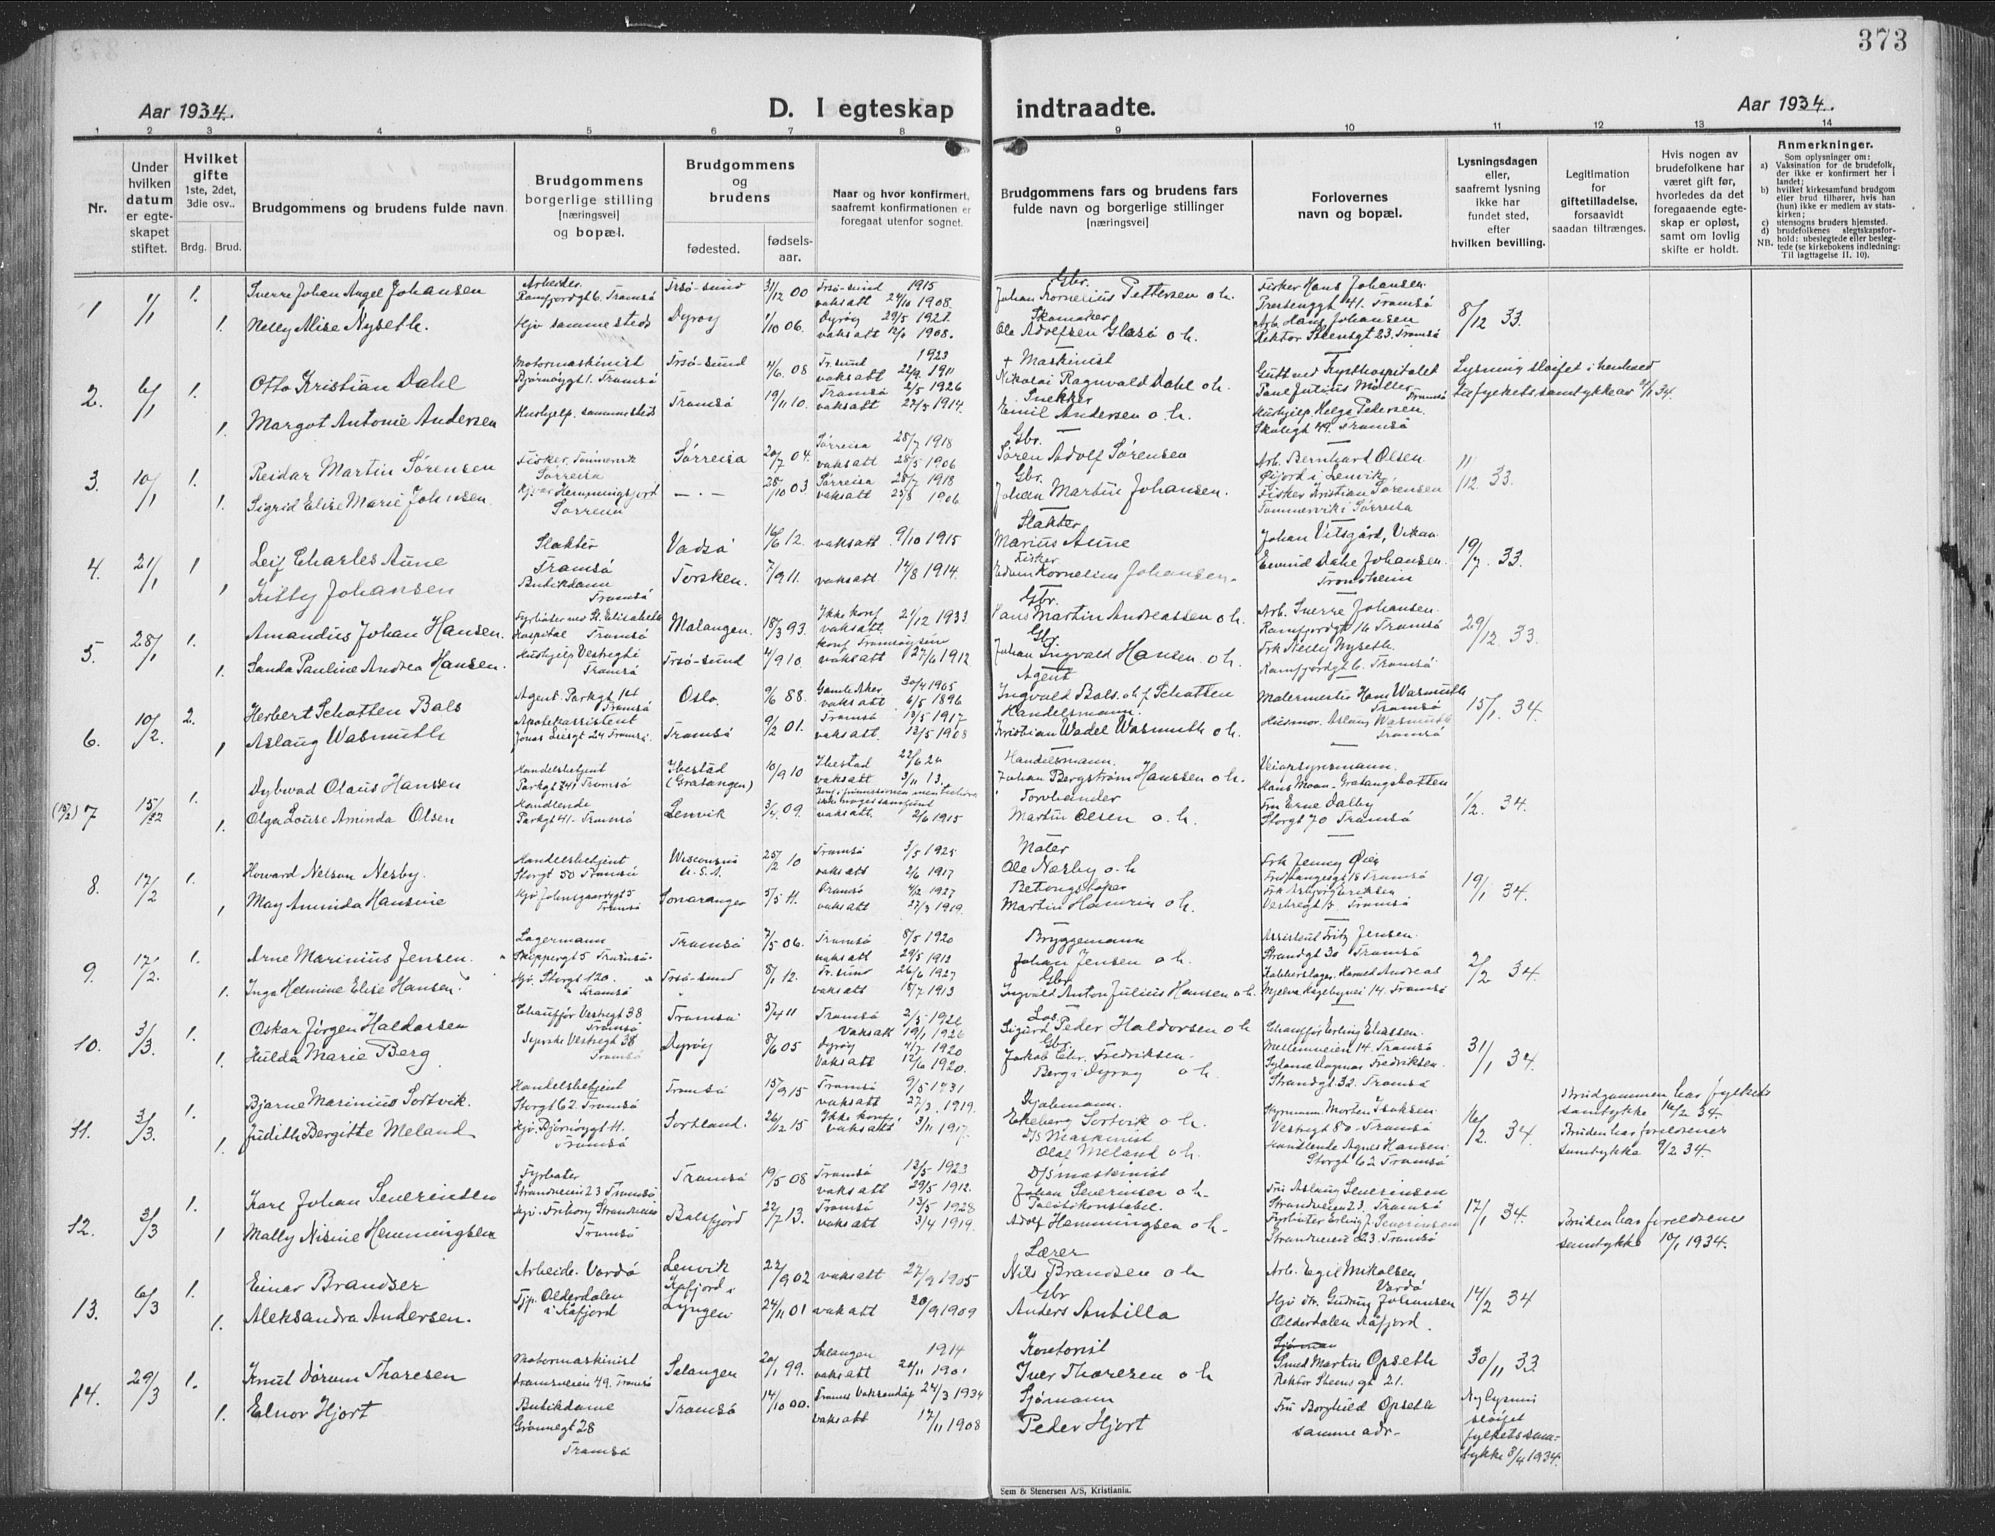 373
Aar 1934.
D. I egteskap indtraadte.
Aar 1934.
1 2 3 4 5 6 7 8 9 10 11 12 13 14
Nr.
Under
hvilken
datum
er egte-
skapet
stiftet.
Hvilket
gifte
1ste, 2det,
3die osv..
Brdg. Brud.
Brudgommens og brudens fulde navn.
Brudgommens
borgerlige stilling
[næringsvei]
og bopæl.
Brudgommens
og
brudens
fødested.
fødsels-
aar.
Naar og hvor konfirmert,
saafremt konfirmationen er
foregaat utenfor sognet.
Brudgommens fars og brudens fars
fulde navn og borgerlige stillinger
[næringsvei]
Forlovernes
navn og bopæl.
Lysningsdagen
eller,
saafremt lysning
ikke har
fundet sted,
efter
hvilken bevilling.
Legitimation
for
giftetilladelse,
forsaavidt
saadan tiltrænges.
Hvis nogen av
brudefolkene har
været gift før,
hvorledes da det
foregaaende egte-
skap er opløst,
samt om lovlig
skifte er holdt.
Anmerkninger.
Som oplysninger om:
a) Vaksination for de brudefolk,
der ikke er konfirmert her i
landet;
b) hvilket kirkesamfund brudgom
eller brud tilhører, hvis han
(hun) ikke er medlem av stats-
kirken;
c) utensogns bruders hjemsted.
d) brudefolkenes slegtskapsfor-
hold: ubeslegtede eller besleg-
NB. tede (se kirkebokens indledning:
Til iagttagelse II, 10).
1 1/1 1. Sverre Johan Angel Johansen
Arbeider
Ramfjordgt 6. Tromsø
Trsø-sund 31/12 00
Trsø-sund 1915
vaksatt 1908.
Gbr.
Johan Kornelius Pettersen o h.
Fisker Hans Johansen
41. Tromsø
8/12 33.
1. Nelly Alise Nyseth.
Hjv sammesteds
Dyrøy 1/10 06.
Dyrøy
vaksatt 1908.
Skomaker
Ole Adolfsen Glasø o h.
Arb. Hans Johansen
Rektor Steensgt 23. Tromsø
2. 6/1 1. Otto Kristian Dahl
Motormaskinist
Bjørnøygt 1. Tromsø
Trsø-sund 4/6 08
Tr.sund 1923
vaksatt 22/9 1911
+ Maskinist
Nikolai Ragnvald Dahl o h.
Lysning sløifet i henhold
1. Margot Antonie Andersen
Hushjelp. sammesteds
Tromsø 19/11 10.
Tromsø 2/5 1926
vaksatt 22/5 1914.
Snekker
Emil Andersen o. h.
Hushjelp. Helga Pedersen
Skolegt 49. Tromsø
3. 10/1 1. Reidar Martin Sørensen
Fisker. Tømmervik
Sørreisa
Sørreisa 20/7 04.
Sørreisa 28/7 1918
vaksatt 28/5 1906
Gbr.
Søren Adolf Sørensen
Arb. Bernhard Olsen
Øifjord i Lenvik
11/12. 33.
1. Sigrid Elise Marie Johansen.
Hemmingsfjord
Sørreisa
— . — 28/10 03
Sørreisa 28/7 1918
vaksatt 1906.
Gbr.
Johan Martin Johansen.
Fisker Kristian Sørensen
Tømmervik i Sørreisa
4. 21/1 1 Leif Charles Aune
Slakter
Tromsø
Vadsø 16/6 12.
vaksatt 9/10 1915
Slakter
Marius Aune
Johan Vitsgård, Vikan
19/7. 33.
1 Kitty Johansen
Butikdame
Tromsø
Torsken. 7/9 11.
vaksatt 14/8 1914.
Fisker
Edvin Kornelius Johansen.
Eivind Dahl Johansen.
Trondheim
5. 28/1 1. Amandus Johan Hansen.
Fyrbøter ved St. Elisabeth
Hospital Tromsø
Malangen. 18/3 93.
Ikke konf.
vaksatt 21/12 1933
Gbr.
Hans Martin Andreassen o h.
Arb. Sverre Johansen.
Ramfjordgt 16 Tromsø
29/12. 33.
1. Sanda Pauline Andrea Hansen.
Hushjelp Vestregt
Tromsø
Trsø-sund 4/9 10.
konf. Tromsøysun
vaksatt 27/6 1912
Gbr.
Johan Ingvald Hansen o h.
Frk Nelly Nyseth
Ramfjordgt 6. Tromsø
6. 10/2. 2. Herbert Schøtten Bals
Agent Parkgt 14
Tromsø
Oslo. 9/6 88
Gamle Aker 30/4 1905
vaksatt 6/5 1896
Agent
Ingvald Bals. o h f Schøtten
Malermester Hans Wasmuth
Tromsø
15/1. 34.
1 Aslaug Wasmuth
Apotekassistent
Jonas Liesgt 24 Tromsø.
Tromsø 9/2 01.
Tromsø 13/5 1917
vaksatt. 12/5 1908
Handelsmann.
Kristian Wadel Wasmuth o h.
Husmor. Aslaug Wasmuth
Tromsø
(15/2) 7 15/2 1. Dybvad Olaus Hansen
Handelsbetjent
Parkgt 41 Tromsø
Ibestad
(Gratangen) 10/9 10
Ibestad
vaksatt 3/11 13.
Handelsmann.
Johan Bergstrøm Hanssen o h.
Hans Moan-Gratangsbotten
1/2. 34.
1. Olga Louise Aminda Olsen
Handlende
Parkgt 41. Tromsø
Lenvik 3/4. 09.
vaksatt. 2/6 1915
Torvhandler
Martin Olsen o. h.
Fru Erne Dalby
Storgt 70 Tromsø
8. 17/2 1. Howard Nelson Nesby.
Handelsbetjent
Storgt 50 Tromsø
Wisconsin
U.S.A. 25/2 10
Tromsø 3/5 1925
vaksatt 2/6 1917
Maler
Ole Nesby o. h
Frk Jenny
19/1 34.
1 May Aminda Hansine
Tromsø
5/5 11.
Tromsø 4/2 1927
vaksatt 27/3 1919.
Betongstøper
Martin Hamrin o h.
Vestregt Tromsø
9. 17/2. 1. Arne Marinius Jensen.
Lagermann
Skippergt 5 Tromsø.
Tromsø 7/5 06.
Tromsø 8/5 1920
vaksatt 29/5 1912
Bryggemann
Johan Jensen o h.
Assistent Fritz Jensen.
Strandgt 30 Tromsø
2/2 34.
1. Inga Helmine Elise Hansen.
Hjv. Storgt 120.
Tromsø
Trsø-sund 8/1 12.
Tr.sund 26/6 1927
vaksatt 15/7 1913
Gbr.
Ingvald Anton Julius Hansen o h.
14. Tromsø
10. 3/3. 1. Oskar Jørgen Haldorsen
Chauffør Vestregt 38
Tromsø
Tromsø 3/4 11
Tromsø 2/5 1926
vaksatt 19/1 1926
Los.
Sigurd Peder Haldorsen o h
Chauffør Erling Eliassen.
Mellemveien 14. Tromsø
31/1 34.
1. Hulda Marie Berg.
Syerske Vestregt 38
Tromsø
Dyrøy 8/6 05
Dyrøy 4/7 1920
Vaksatt 12/6 1920.
Gbr.
Jakob Chr. Fredriksen
Berg i Dyrøy o h.
Sydame Dagmar Fredriksen
Strandgt 32. Tromsø
11. 3/3. 1. Bjarne Marinius Sortvik.
Handelsbetjent
Storgt 62. Tromsø
Tromsø 15/9 15
Tromsø 9/5 1931
vaksatt 27/3. 1919.
Ekeberg Sortvik o h.
Styrmann Morten Isaksen
Vestregt 80. Tromsø
16/2. 34.
Brudgommen har fylkets
samtykke 14/2 34.
1. Judith Bergitte Meland
Hjv. Bjørnøygt 11.
Tromsø
Sortland. 26/2 15
Ikke konf.
vaksatt 3/11 1917.
D/S Maskinist
Olaf Meland o h.
Handlende Agnes Hansen
Storgt 62 Tromsø
Bruden har foreldrenes
samtykke 9/2 34.
12. 3/3 1. Kare Johan Severinsen
Fyrbøter
Strandveien 23 Tromsø.
Tromsø 19/5 08
Tromsø 13/5 1923
vaksatt 29/5 1912.
D/S maskinist
Johan Severinsen o h.
Fru Aslaug Severinsen
Strandveien 23. Tromsø
17/1 34.
1 Mally Nisine Hemmingsen
Hjv. Friborg Strandveien
Tromsø
Balsfjord 22/7 13.
Tromsø 13/5 1928
vaksatt 3/4 1919.
Politikonstabel.
Adolf Hemmingsen o h.
Fyrbøter Erling J. Severinsen
Strandveien 23. Tromsø
Bruden har foreldrenes
samtykke 10/1 1934.
13. 6/3 1. Einar Brandser
Arbeide. Vardø
Lenvik 22/9 02
vaksatt 27/9 1905
Lærer
Nils Brandsen o h
Arb. Egil Mikalsen
Vardø
14/2 34
1. Aleksandra Andersen.
Tjp. Olderdalen
i Kåfjord
Kåfjord i
Lyngen 24/11 01
vaksatt 20/9 1909
Gbr
Anders Antilla
Hjv Gudrun Johansen
Olderdalen Kåfjord.
14. 29/3 1. Knut Dórum Thoresen
Motormaskinist
Tromsøveien 49. Tromsø
Salangen 20/1 99.
Salangen 1914
vaksatt 1901
Iver Thoresen o h
Smed Martin Opseth
Rektor Steensgt 21.
30/11 33.
1. Elnor Hjort
Butikdame
Grønnegt 28
Tromsø
Tromsø 14/10 00.
24/3 1934
vaksatt 17/11 1908
Sjømann
Peder Hjort
Fru Borghild Opseth
samme adr.
Ny lysning
sløifet
fylkets sam-
tykke 3/4 1934.
Sem & Stenersen A/S, Kristiania.